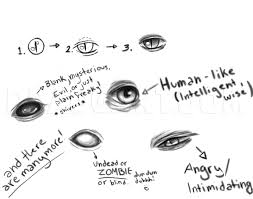 1.
2.
3.
Blank, mysterious,
Evil, or just
plain freaky!
*shivers*
Human-like
(Intelligent
wise)
and there
are many more!
Undead or
ZOMBIE
or blind.
dun dun
Angry/
Intimidating